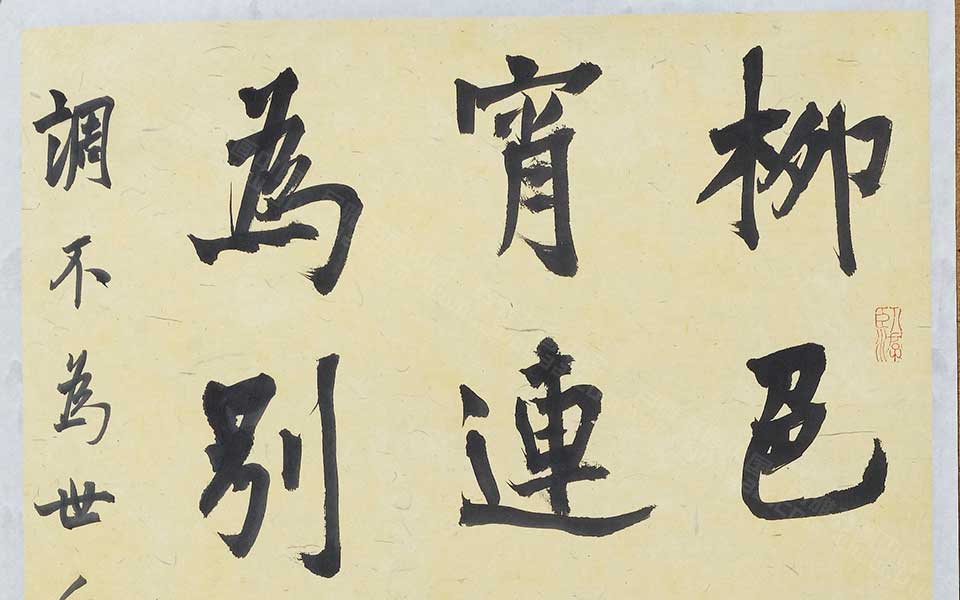 柳色
宵連
為別
調不為世